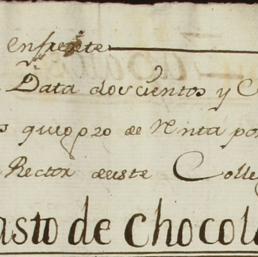 enfrente
Data doscientos y
de Renta po
Rector deeste Colle
asto de chocola